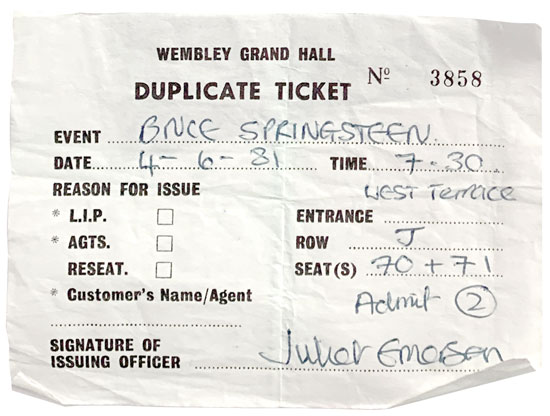 WEMBLEY GRAND HALL
DUPLICATE TICKET Nº 3858
EVENT BNCE SPRINGSTEEN.
DATE 4-6-81 TIME 7.30
REASON FOR ISSUE West Terrace
* L.I.P. ENTRANCE
* AGTS. ROW J
RESEAT. SEAT(S) 70 + 71
* Customer's Name/Agent Admit 2
SIGNATURE OF
ISSUING OFFICER